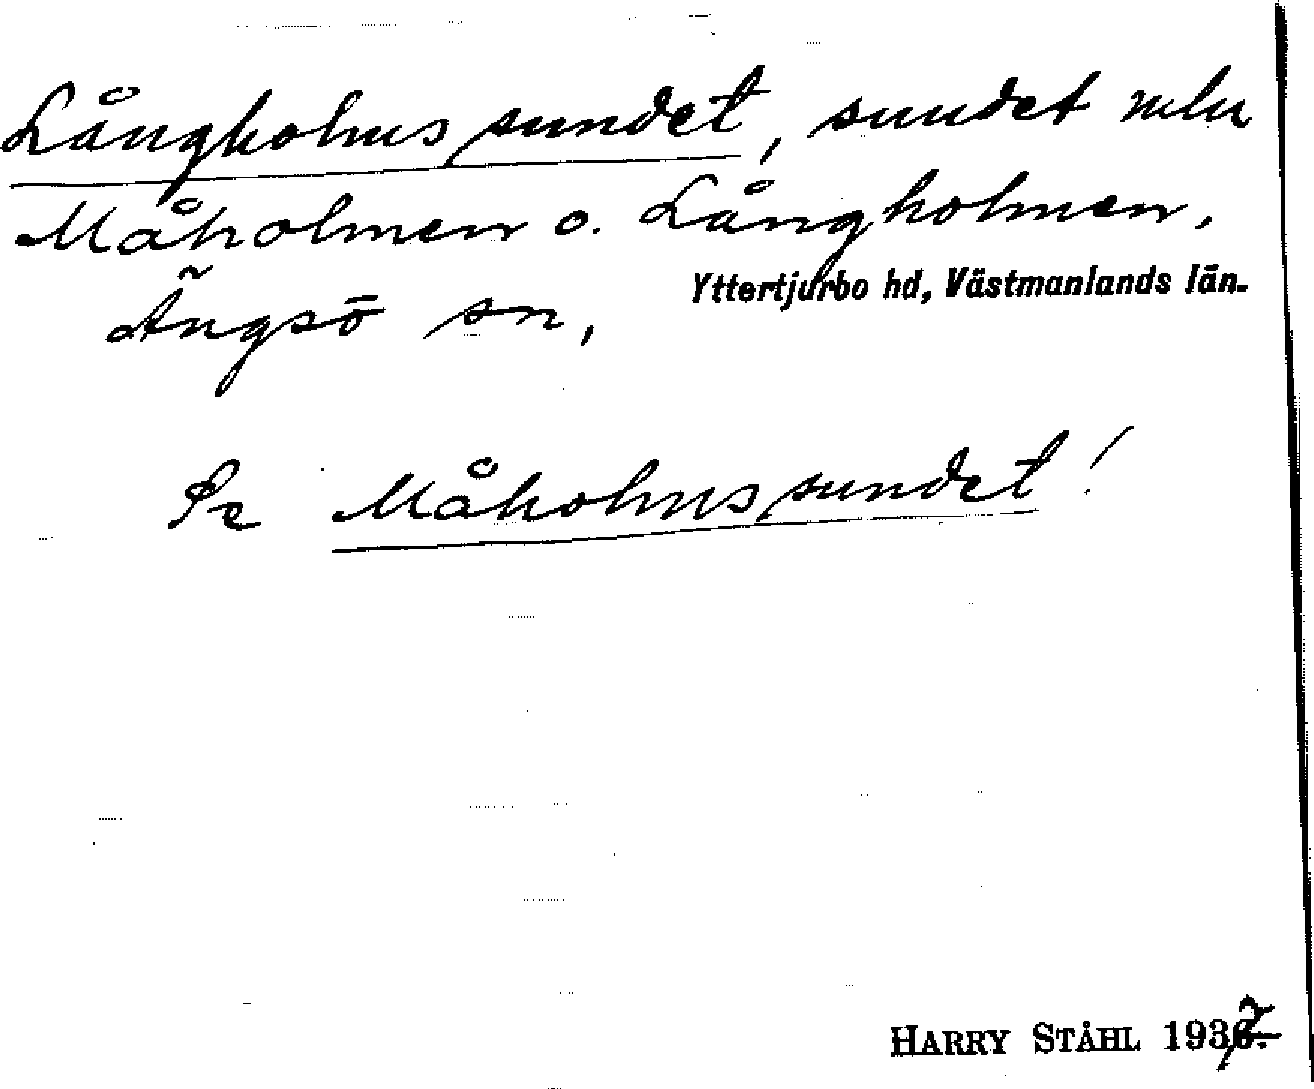 Långholmssundet, sundet mln
Måholmen o. Långholmen,
Ängsö sn, Yttertjurbo hd, Västmanlands län.
Se Måholmssundet!
HARRY STÅHL 1937